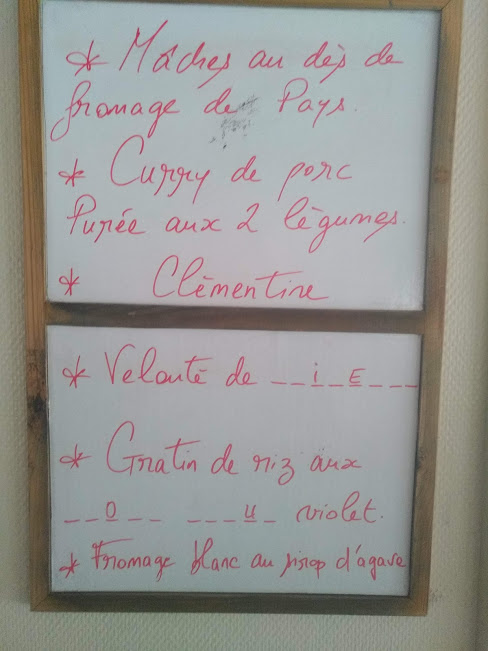 * Mâches au dès de
fromage de Pays.
* Curry de porc
Purée aux 2 lègumes.
* Clèmentine
* Velouté de _ _ i _ E _ _ _
* Gratin de riz aux
_ _ o _ _ _ _ _ u _ violet.
* Fromage blanc au sirop d'agave